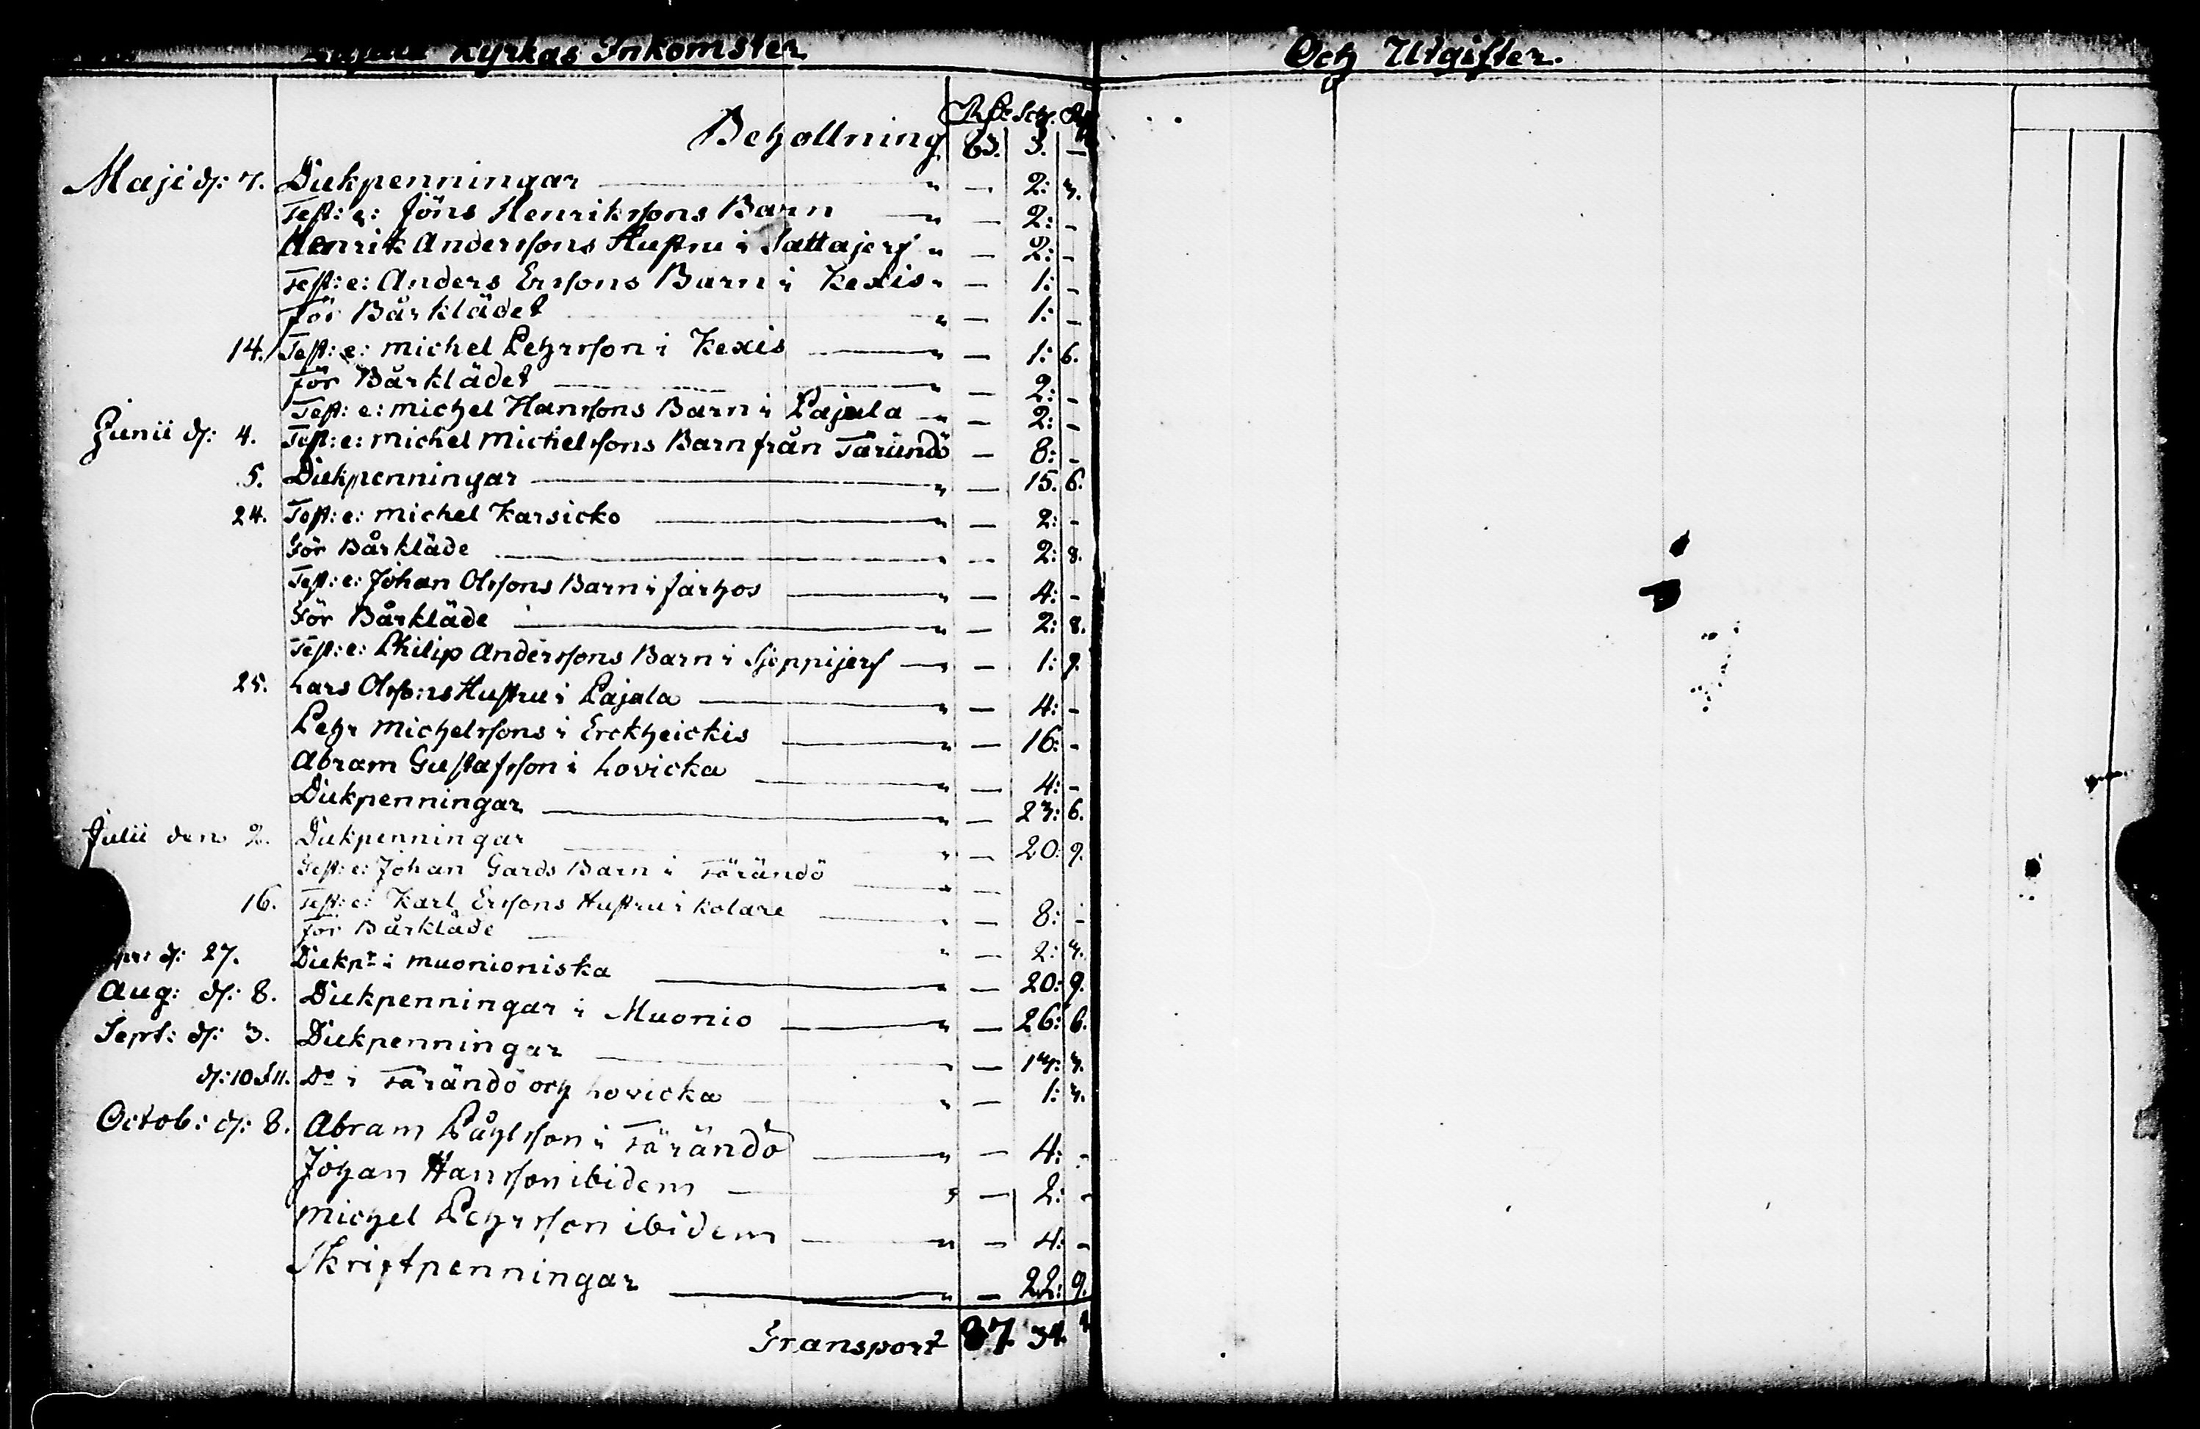 Kyrkas Inkomster
Och Utgifter.
Rd: Sch. Rf
Behollning 63. 3. —
Maji d: 7. Diskpenningar " — 2: 7.
Test: e: Jöns Henrikssons Barn " — 2: -
Henrik Anderssons Hustru i Sattajerf " — 2: -
Test: e: Anders Ersons Barn i Kexis " — 1: -
För Bårklädet " — 1: -
14. Test: e: Michel Pehrsson i Kexis " — 1: 6.
För Bårklädet " — 2: -
Test: e: Michel Hanssons Barn i Pajala " — 2: -
Junii d: 4. Test: e: Michel Michelssons Barn från Tärändö — 8: -
5. Diskpenningar " — 15. 6.
24. Test: e: Michel Karsicko " — 2: -
För Bårkläde " — 2: 8.
Test: e: Johan Olssons Barn i Jarhos " — 4: -
För Bårkläde " — 2: 8.
Test: e: Philip Anderssons Barn i Sjeppijerf " — 1: 9.
25. Lars Olssons Hustru i Pajala " — 4: -
Pehr Michelssons i Erckheickis " — 16: -
Abram Gustafsson i Lovicka " — 4: -
Diskpenningar " — 23: 6.
Julii den 2. Diskpenningar " — 20: 9.
Test: e: Johan Gards Barn i Tärändö " —
16. Test: e: Karl Ersons Hustru i Kolare " — 8: -
För Bårkläde " — 2: 7.
d: 27. Diskpr i Muonioniska " — 20: 9.
Aug: d: 8. Diskpenningar i Muonio " — 26: 6.
Sept: d: 3. Diskpenningar " — 17: 7.
d: 10 & 11. Do i Tärändö och Lovicka " — 1: 7.
Octob: d: 8. Abram Påhlsson i Tärändö " — 4: -
Johan Hansson ibidem " — 2: -
Michel Pehrsson ibidem " — 4: -
Skriftpenningar " — 22: 9.
Transport 37. 34.